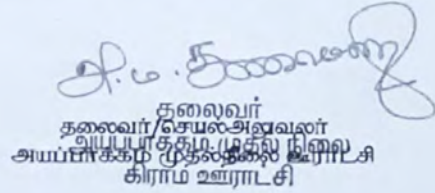 தலைவர்
தலைவர்/செயல்அலுவலர்
அயப்பாக்கம் முதல் நிலை
அயப்பாக்கம் முதல்நிலை ஊராட்சி
கிராம ஊராட்சி